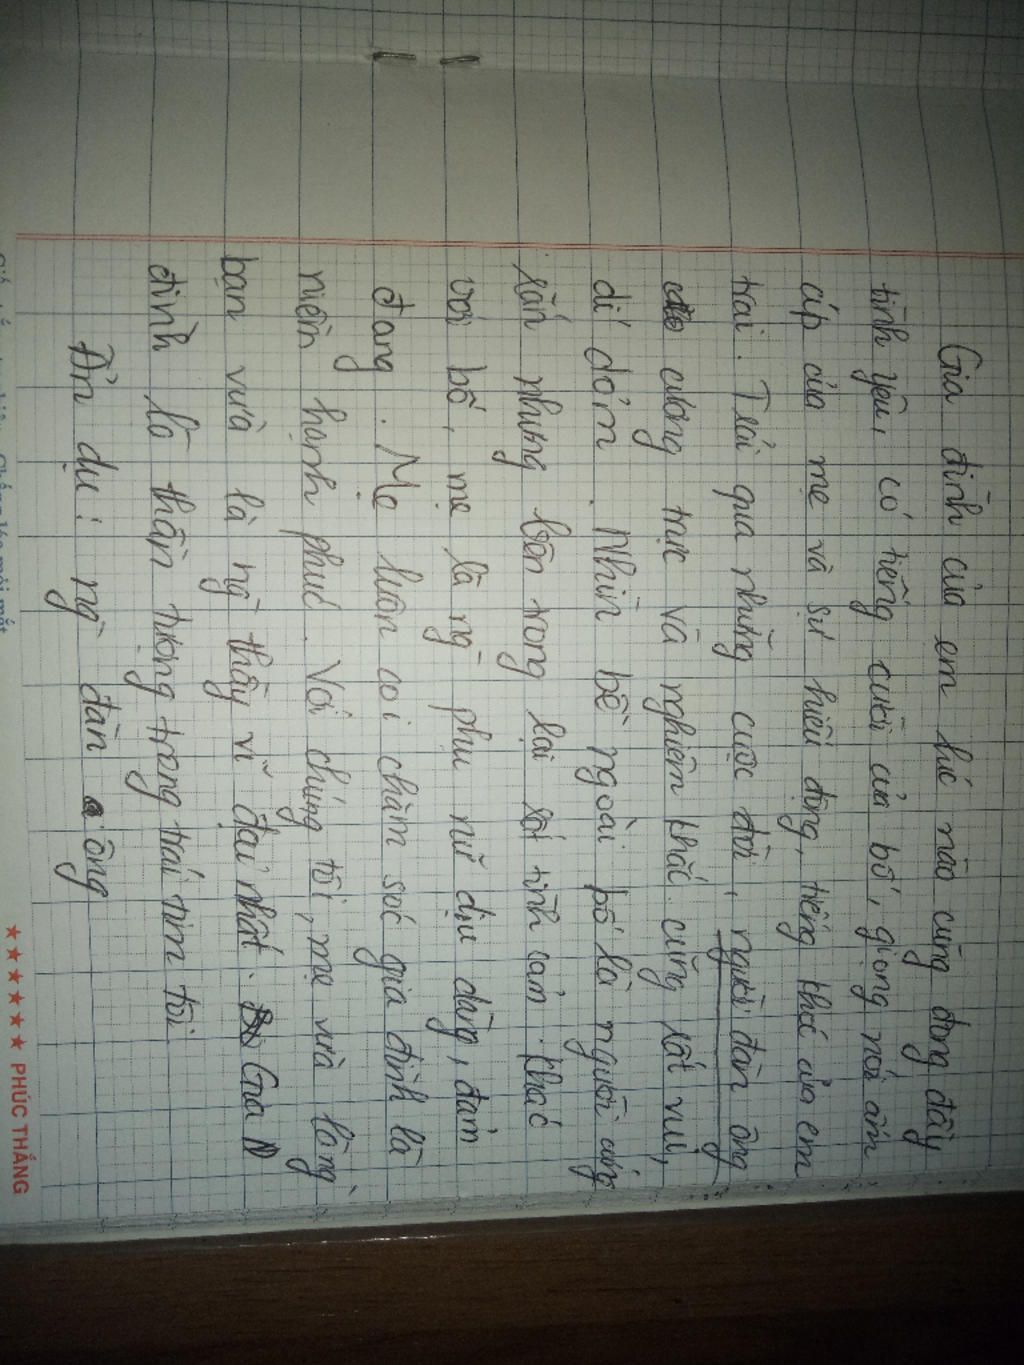 Gia đình của em lúc nào cũng đong đầy
tình yêu, có tiếng cười của bố, giọng nói ấm
áp của mẹ và sự hiếu động, tiếng thở của em
trai. Trải qua những cuộc đời, người đàn ông
cương trực và nghiêm khắc cũng rất vui,
dí dỏm. Nhìn bề ngoài bố là người cứng
rắn nhưng bên trong lại rất tình cảm. Khác
với bố, mẹ là ng` phụ nữ dịu dàng, đảm
đang. Mẹ luôn coi chăm sóc gia đình là
niềm hạnh phúc. Với chúng tôi, mẹ vừa là ng`
bạn vừa là ng` thầy vĩ đại nhất. Gia
đình là thần tượng trong trái tim tôi
Ẩn dụ: ng` đàn ông
★★★★★ PHÚC THẮNG